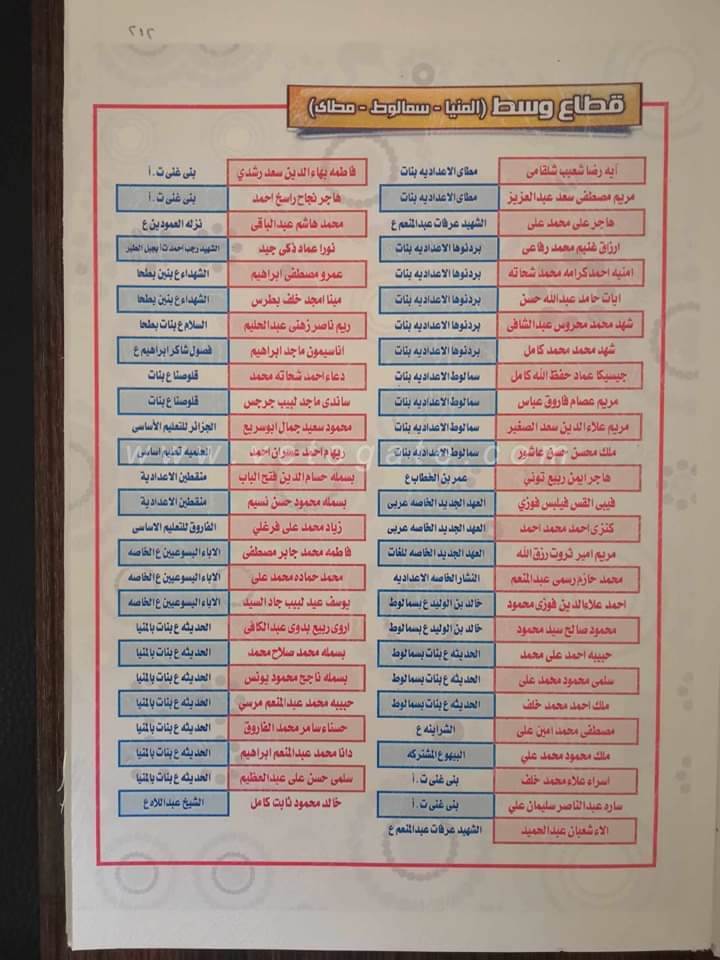 ٢٤٢
قطاع وسط (المنيا - سمالوط - مطاى)
آيه رضا شعيب شلقامى مطاى الاعداديه بنات
مريم مصطفى سعد عبدالعزيز مطاى الاعداديه بنات
هاجر على محمد على الشهيد عرفات عبدالمنعم ع
ارزاق غنيم محمد رفاعى بردنوها الاعداديه بنات
امنيه احمد كرامه محمد شحاته بردنوها الاعداديه بنات
ايات حامد عبدالله حسن بردنوها الاعداديه بنات
شهد محمد محروس عبدالشافى بردنوها الاعداديه بنات
شهد محمد محمد كامل بردنوها الاعداديه بنات
جيسيكا عماد حفظ الله كامل سمالوط الاعداديه بنات
مريم عصام فاروق عباس سمالوط الاعداديه بنات
مريم علاءالدين سعد الصغير سمالوط الاعداديه بنات
ملك محسن حسن عاشور سمالوط الاعداديه بنات
هاجر ايمن ربيع توني عمر بن الخطاب ع
فيبى القس فيلبس فوزي العهد الجديد الخاصه عربى
كنزى احمد محمد احمد العهد الجديد الخاصه عربى
مريم امير ثروت رزق الله العهد الجديد الخاصه للغات
محمد حازم رسمى عبدالمنعم النشار الخاصه الاعداديه
احمد علاءالدين فوزى محمود خالد بن الوليد ع بسمالوط
محمود صالح سيد محمود خالد بن الوليد ع بسمالوط
حبيبه احمد على محمد الحديثه ع بنات بسمالوط
سلمى محمود محمد على الحديثه ع بنات بسمالوط
ملك احمد محمد خلف الحديثه ع بنات بسمالوط
مصطفى محمد امين على الشراينه ع
ملك محمود محمد علي البيهو ع المشتركه
اسراء علاء محمد خلف بنى غنى ت . أ
ساره عبدالناصر سليمان علي بنى غنى ت . أ
الاء شعبان عبدالحميد الشهيد عرفات عبدالمنعم ع
فاطمه بهاءالدين سعد رشدي بنى غنى ت . أ
هاجر نجاح راسخ احمد بنى غنى ت . أ
محمد هاشم عبدالباقى نزله العمودين ع
نورا عماد ذكى جيد الشهيد رجب احمد ت أ بجبل الطير
عمرو مصطفى ابراهيم الشهداء ع بنين بطحا
مينا امجد خلف بطرس الشهداء ع بنين بطحا
ريم ناصر زهنى عبدالحليم السلام ع بنات بطحا
اناسيمون ماجد ابراهيم فصول شاكر ابراهيم ع
دعاء احمد شحاته محمد قلوصنا ع بنات
ساندى ماجد لبيب جرجس قلوصنا ع بنات
محمود سعيد جمال ابوسريع الجزائر للتعليم الأساسى
ريهام احمد عمران احمد تعليم اساسى
بسمله حسام الدين فتح الباب منقطين الاعدادية
بسمله محمود حسن نسيم منقطين الاعدادية
زياد محمد على فرغلي الفاروق للتعليم الاساسى
فاطمه محمد جابر مصطفى الاباء اليسوعيين ع الخاصه
محمد حماده محمد على الاباء اليسوعيين ع الخاصه
يوسف عيد لبيب جاد السيد الاباء اليسوعيين ع الخاصه
اروى ربيع بدوى عبدالكافى الحديثه ع بنات بالمنيا
بسمله محمد صلاح محمد الحديثه ع بنات بالمنيا
بسمله ناجح محمود يونس الحديثه ع بنات بالمنيا
حبيبه محمد عبدالمنعم مرسي الحديثه ع بنات بالمنيا
حسناء سامر محمد الفاروق الحديثه ع بنات بالمنيا
دانا محمد عبدالمنعم ابراهيم الحديثه ع بنات بالمنيا
سلمى حسن على عبدالعظيم الحديثه ع بنات بالمنيا
خالد محمود ثابت كامل الشيخ عبداللاه ع